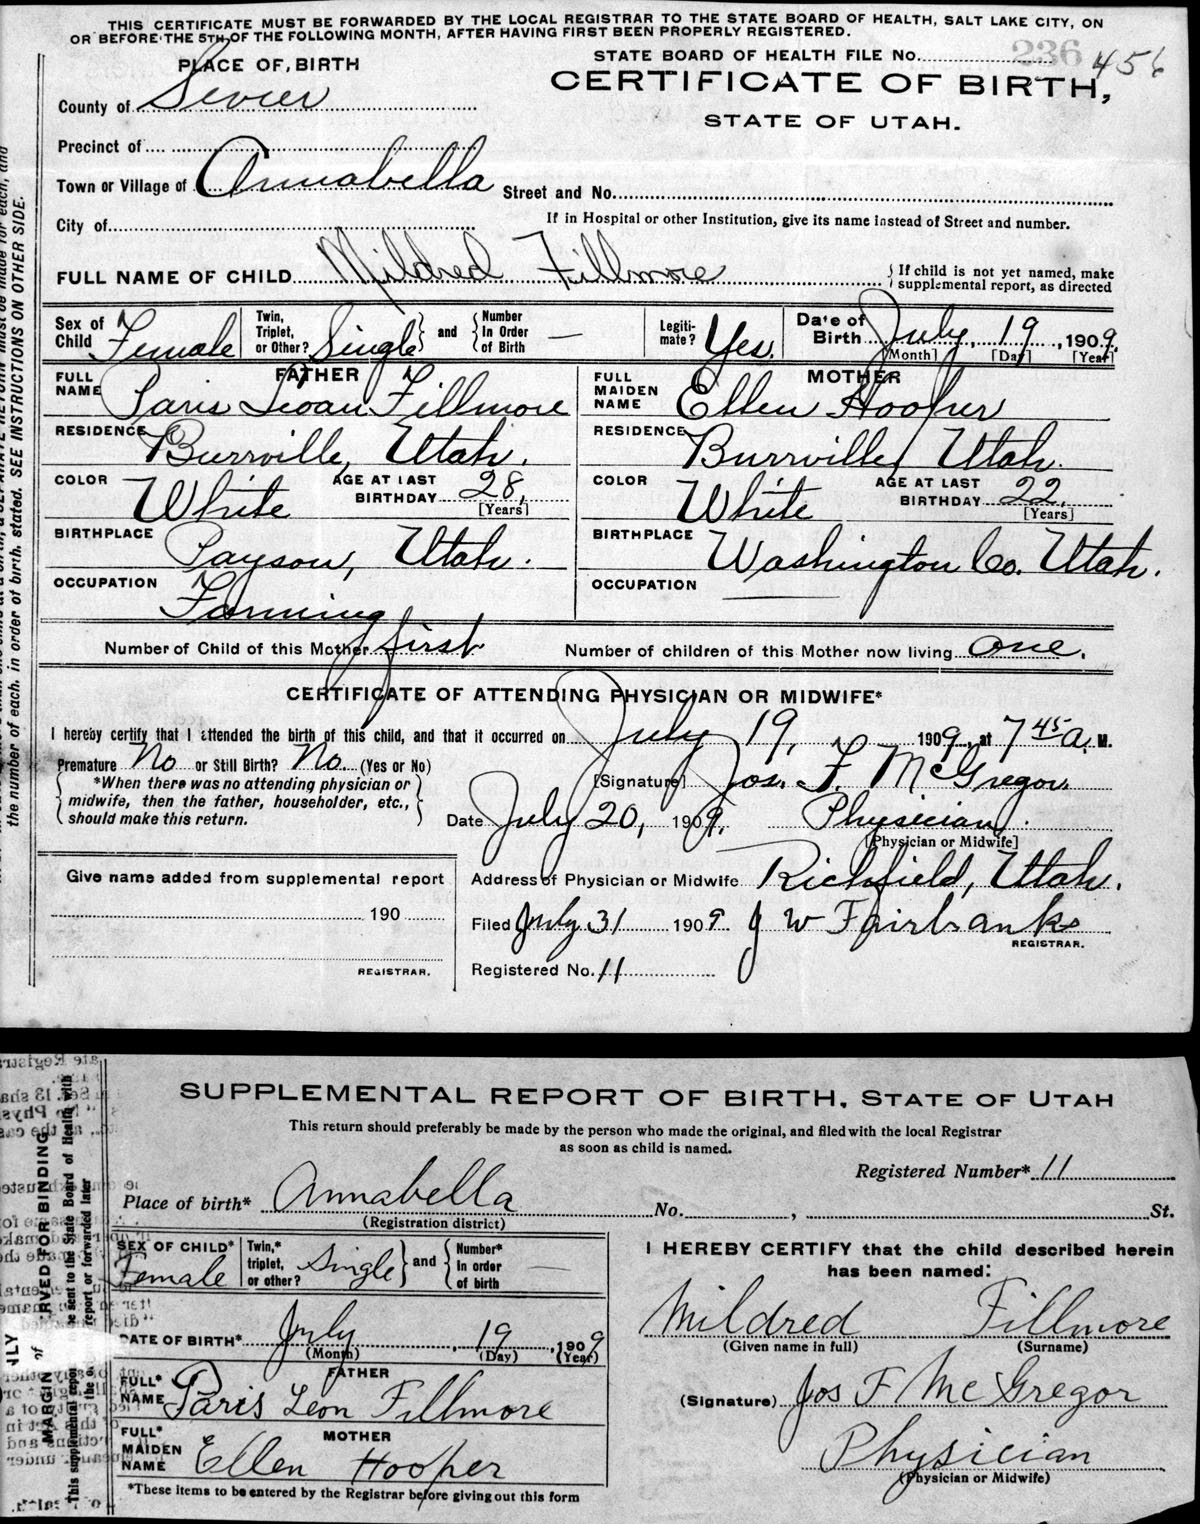 THIS CERTIFICATE MUST BE FORWARDED BY THE LOCAL REGISTRAR TO THE STATE BOARD OF HEALTH, SALT LAKE CITY, ON
OR BEFORE THE 5TH OF THE FOLLOWING MONTH, AFTER HAVING FIRST BEEN PROPERLY REGISTERED.
PLACE OF BIRTH
STATE BOARD OF HEALTH FILE No. 236 456
County of Sevier
CERTIFICATE OF BIRTH,
STATE OF UTAH.
Precinct of
Town or Village of Annabella Street and No.
City of
If in Hospital or other Institution, give its name instead of Street and number.
FULL NAME OF CHILD Mildred Fillmore
If child is not yet named, make
supplemental report, as directed
Sex of Child Female Twin, Triplet, or Other? Single and Number In Order of Birth — Legiti-mate? Yes. Date of Birth July, 19, 1909.
[Month] [Day] [Year]
FATHER MOTHER
FULL NAME Paris Leoan Fillmore FULL MAIDEN NAME Ellen Hooper
RESIDENCE Burrville, Utah. RESIDENCE Burrville, Utah.
COLOR White AGE AT LAST BIRTHDAY 28, [Years] COLOR White AGE AT LAST BIRTHDAY 22, [Years]
BIRTHPLACE Payson, Utah. BIRTHPLACE Washington Co. Utah.
OCCUPATION Farming OCCUPATION
Number of Child of this Mother first Number of children of this Mother now living one.
CERTIFICATE OF ATTENDING PHYSICIAN OR MIDWIFE*
I hereby certify that I attended the birth of this child, and that it occurred on July 19, 1909, at 7 45 a. M.
Premature No or Still Birth? No. (Yes or No)
*When there was no attending physician or
midwife, then the father, householder, etc.,
should make this return.
[Signature] Jos. F. McGregor,
Date July 20, 1909. Physician.
[Physician or Midwife]
Give name added from supplemental report
Address of Physician or Midwife Richfield, Utah.
190
Filed July 31 1909. J W Fairbanks
REGISTRAR.
REGISTRAR.
Registered No. 11
the number of each, in order of birth, stated. SEE INSTRUCTIONS ON OTHER SIDE.
SUPPLEMENTAL REPORT OF BIRTH, STATE OF UTAH
This return should preferably be made by the person who made the original, and filed with the local Registrar
as soon as child is named.
Registered Number* 11
Place of birth* Annabella No. , St.
(Registration district)
SEX OF CHILD* Female Twin,* triplet, or other? Single and Number* In order of birth —
I HEREBY CERTIFY that the child described herein
has been named:
DATE OF BIRTH* July, 19, 1909
(Month) (Day) (Year)
Mildred Fillmore
(Given name in full) (Surname)
FATHER
FULL* NAME Paris Leon Fillmore
(Signature) Jos F McGregor
MOTHER
FULL* MAIDEN NAME Ellen Hooper
Physician
(Physician or Midwife)
*These items to be entered by the Registrar before giving out this form